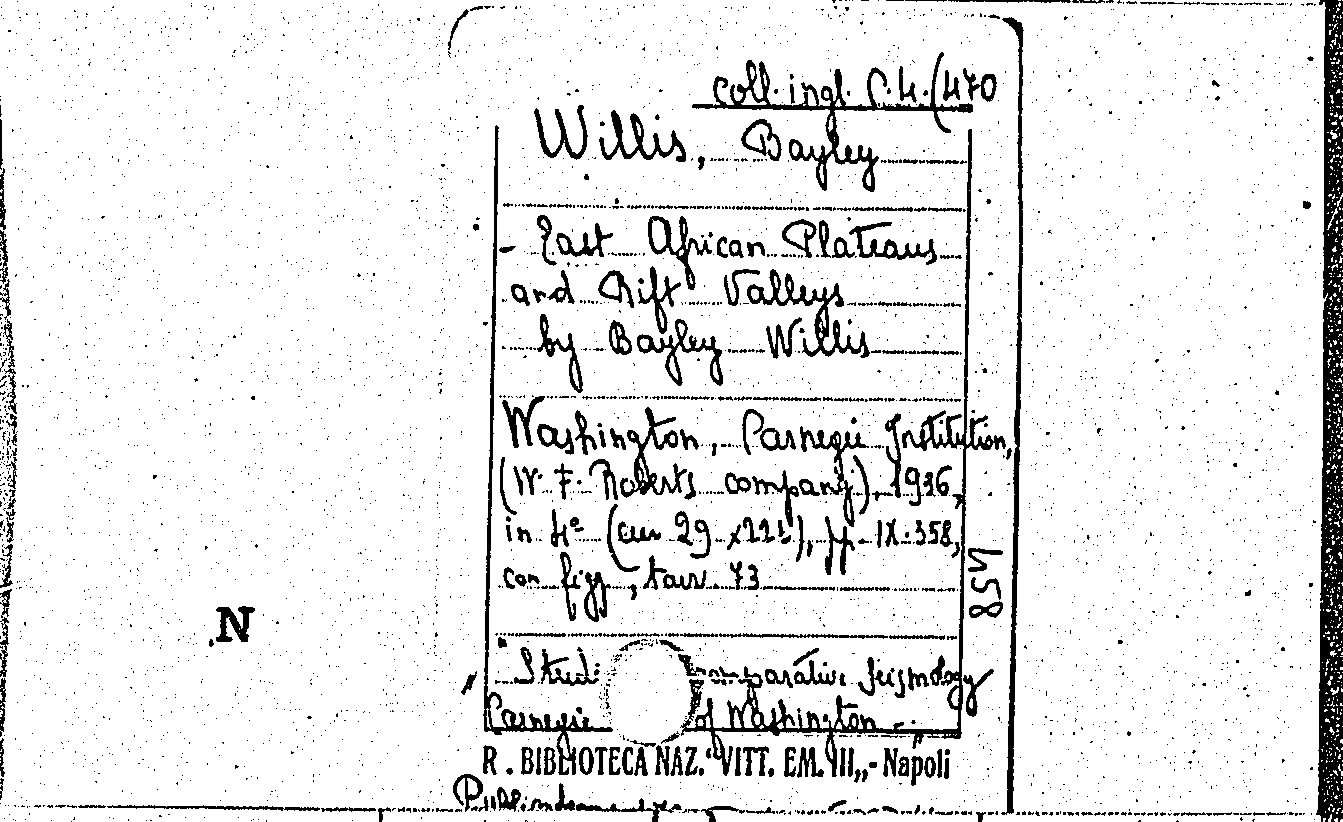 coll. ingl. C.4.(470
Willis, Bayley
- East African Plateaus
and Rift Valleys
by Bayley Willis
Washington, Carnegie Institution,
(W. F. Roberts company), 1936,
in 4° (cm 29 x22½), pp. IX-358,
con figg, tavv. 73
458
N
"Studi comparative seismology
Carnegie of Washington - "
R. BIBLIOTECA NAZ. "VITT. EM. III„ - Napoli